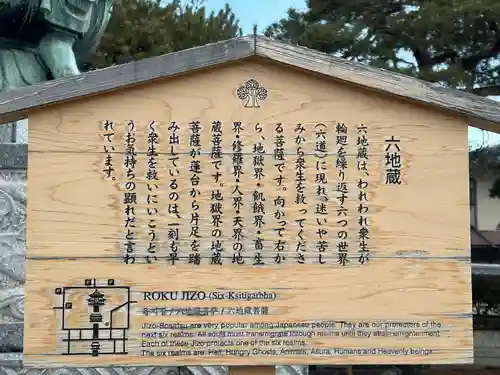 六地蔵
六地蔵は、われわれ衆生が
輪廻を繰り返す六つの世界
（六道）に現れ、迷いや苦し
みから衆生を救ってくださ
る菩薩です。向かって右か
ら、地獄界・飢餓界・畜生
界・修羅界・人界・天界の地
蔵菩薩です。地獄界の地蔵
菩薩が蓮台から片足を踏
み出しているのは、刻も早
く衆生を救いにいこうとい
うお気持ちの顕れだと言わ
れています。
ROKU JIZO (Six-Ksitigarbha)
육지장 / 六地藏菩萨 / 六地蔵菩薩
Jizo-Bosatsu are very popular among Japanese people. They are our protectors of the
next six realms. All souls must transmigrate through realms until they attain enlightenment.
Each of these Jizo protects one of the six realms.
The six realms are: Hell, Hungry Ghosts, Animals, Asura, Humans and Heavenly beings.